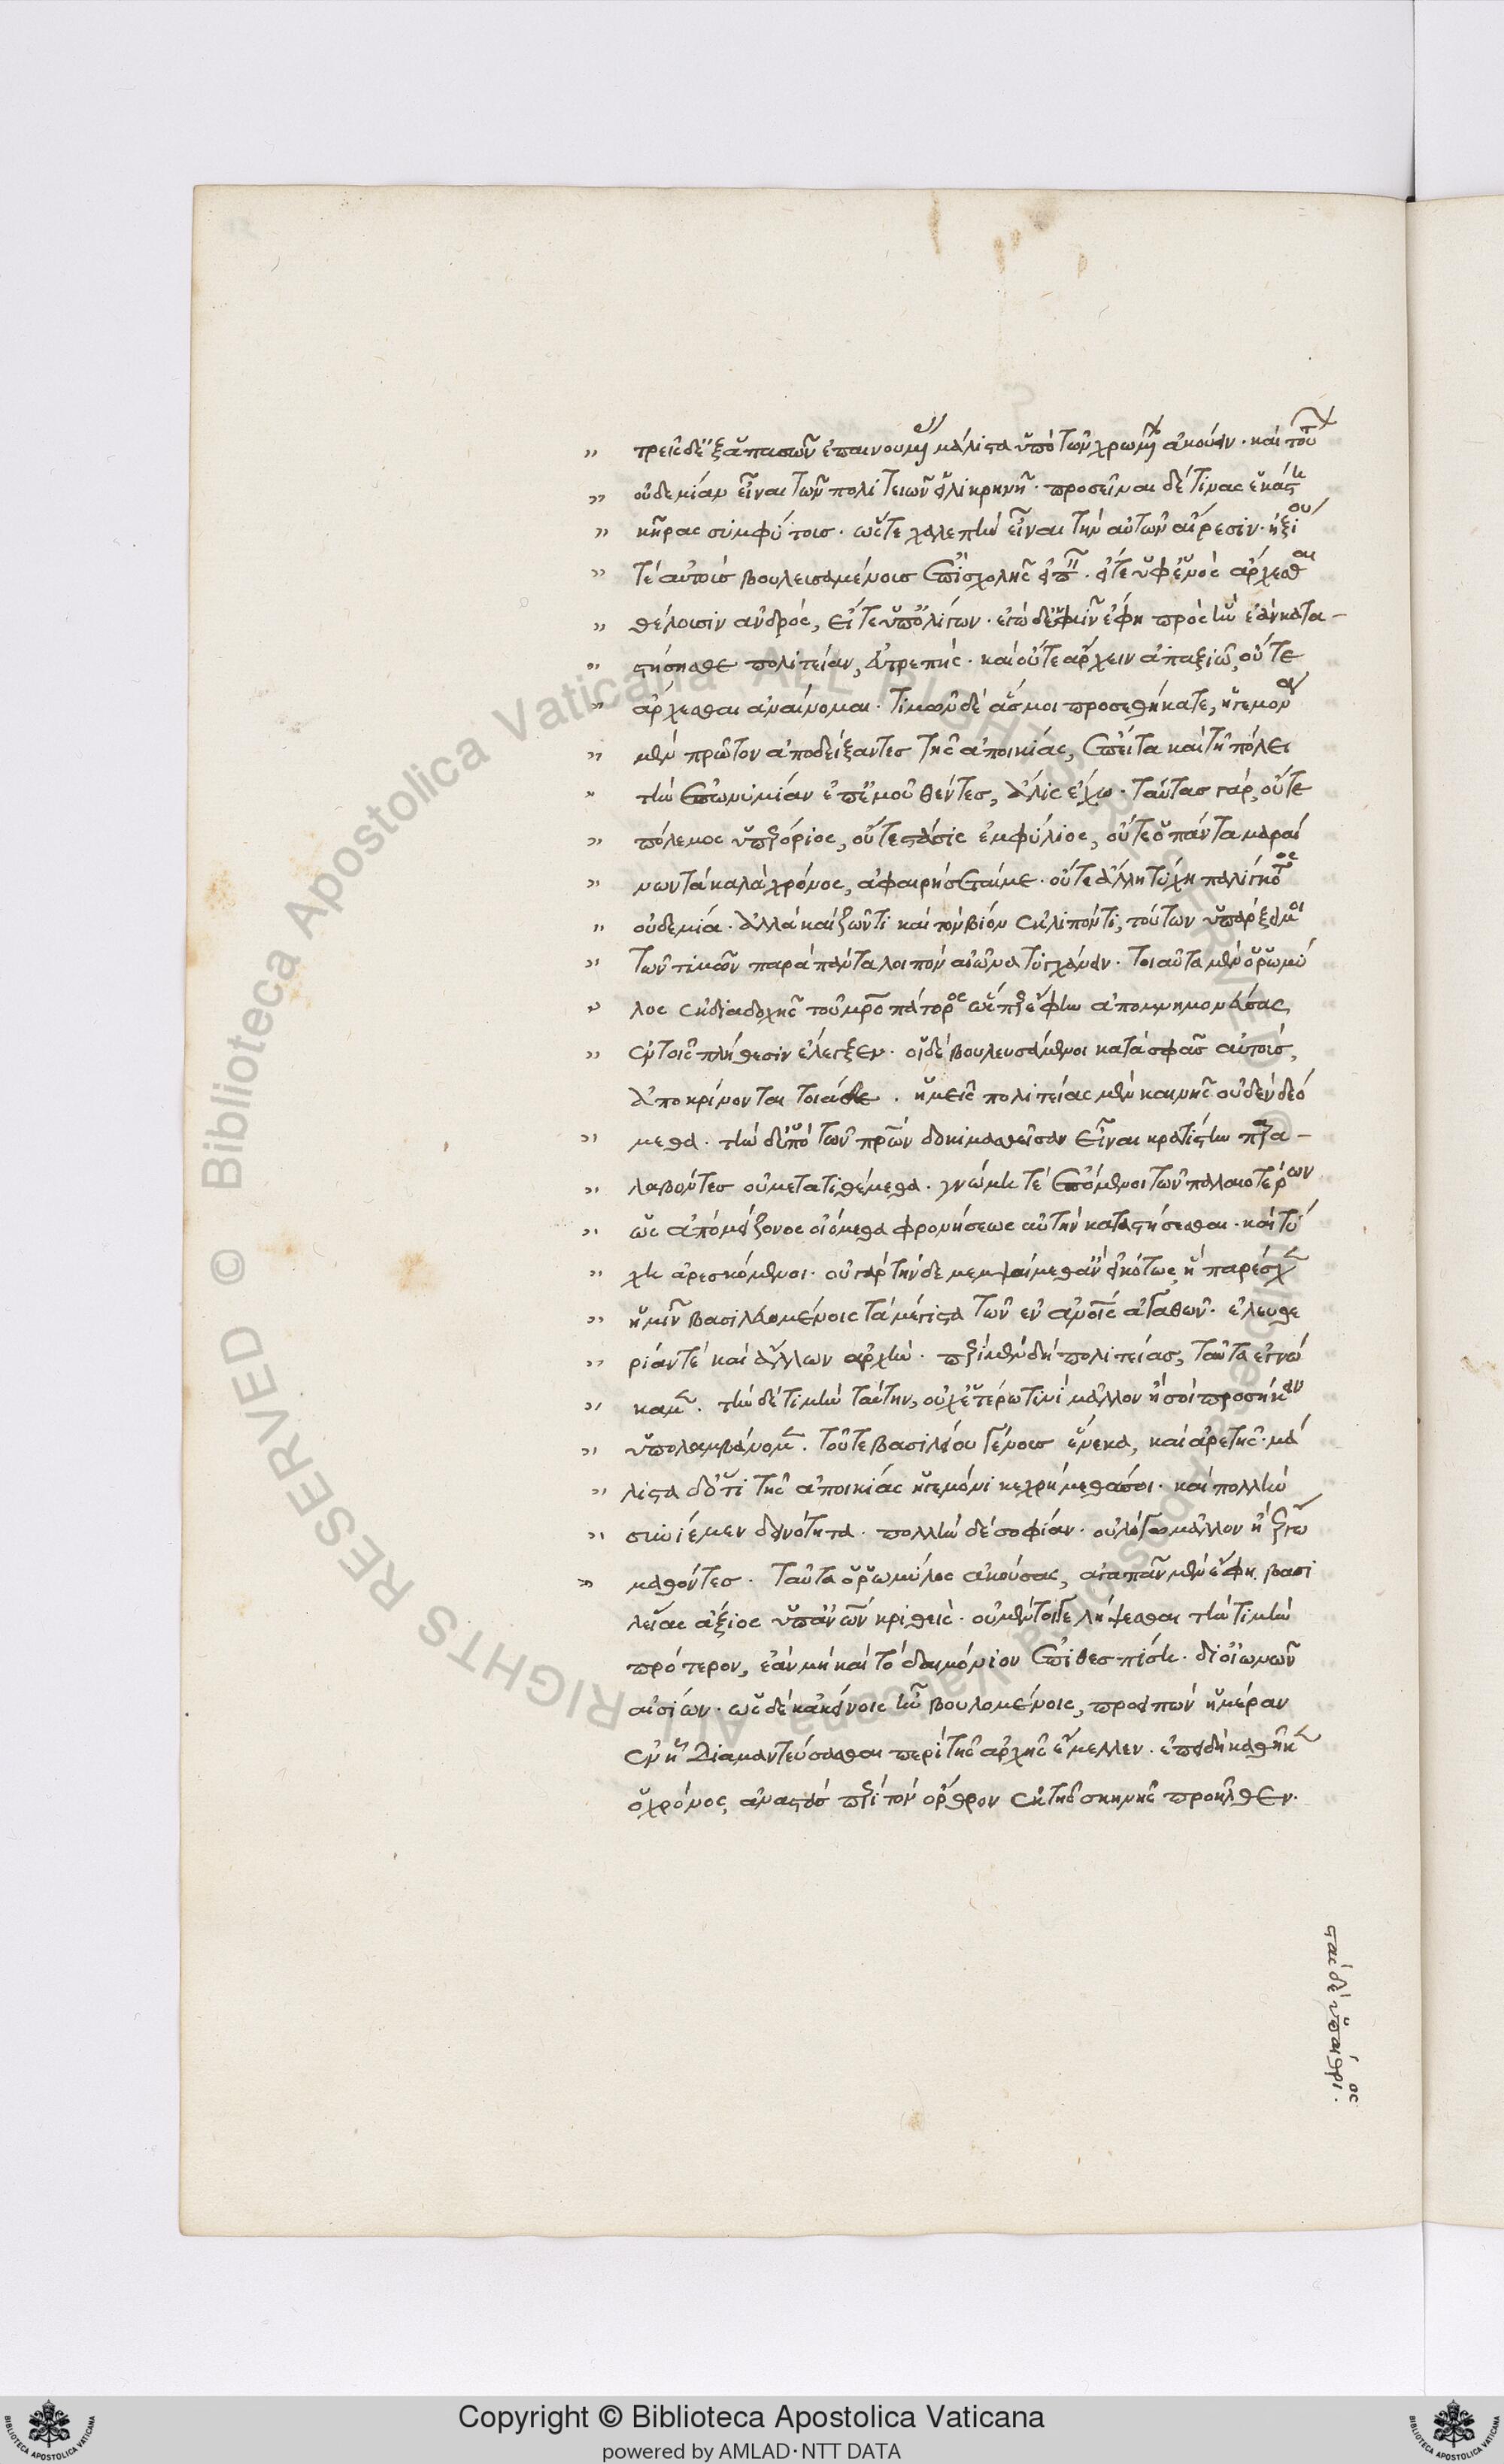 τρεῖς δὲ ἐξ ἁπασῶν ἐπαινουμένας μάλιστα ὑπὸ τῶν χρωμένων ἀκούειν · καὶ τούτων
οὐδεμίαν εἶναι τῶν πολιτειῶν εἰλικρινῆ · προσεῖναι δέ τινας ἑκάστη
κῆρας συμφύτους · ὥστε χαλεπὴν εἶναι τὴν αὐτῶν αἵρεσιν · ἠξίου
τε αὐτοὺς βουλευσαμένους ἐπὶ σχολῆς εἰπεῖν · εἴτε ὑφ' ἑνὸς ἄρχεσθαι
θέλουσιν ἀνδρός, εἴτε ὑπ' ὀλίγων · ἐγὼ δ' ὑμῖν ἔφη πρὸς ἣν ἐὰν κατα-
στήσησθε πολιτείαν, εὐτρεπής · καὶ οὔτε ἄρχειν ἀπαξιῶ, οὔτε
ἄρχεσθαι ἀναίνομαι · τιμῶν δὲ ἅς μοι προσεθήκατε, ἡγεμόνα
μὲν πρῶτον ἀποδείξαντες τῆς ἀποικίας, ἔπειτα καὶ τῇ πόλει
τὴν ἐπωνυμίαν ἐπ' ἐμοῦ θέντες, ἅλις ἔχω · ταύτας γὰρ, οὔτε
πόλεμος ὑπερόριος, οὔτε στάσις ἐμφύλιος, οὔτε ὁ πάντα μαραί
νων τὰ καλὰ χρόνος, ἀφαιρήσεταί με · οὔτε ἄλλη τύχη παλίγκοτος
οὐδεμία · ἀλλὰ καὶ ζῶντι καὶ τὸν βίον ἐκλιπόντι, τούτων ὑπάρξει μοι
τῶν τιμῶν παρὰ πάντα λοιπὸν αἰῶνα τυγχάνειν · τοιαῦτα μὲν ὁ ῥωμύ
λος ἐκ διδαχῆς τοῦ μητροπάτορος ὥσπερ ἔφην ἀπομνημονεύσας
ἐν τοῖς πλήθεσιν ἔλεγξεν · οἱ δὲ βουλευσάμενοι κατὰ σφᾶς αὐτοὺς,
ἀποκρίνονται τοιάδε · ἡμεῖς πολιτείας μὲν καινῆς οὐδὲν δεό
μεθα · τὴν δ' ὑπὸ τῶν πατέρων δοκιμασθεῖσαν εἶναι κρατίστην παρα-
λαβόντες οὐ μετατιθέμεθα · γνώμη τε ἑπόμενοι τῶν παλαιοτέρων
ὡς ἀπὸ μείζονος οἰόμεθα φρονήσεως αὐτὴν καταστήσεσθαι · καὶ τύ
χη ἀρεσκόμενοι · οὐ γὰρ τήνδε μεμψαίμεθ' ἂν εἰκότως, ἣ παρέσχεν
ἡμῖν βασιλευομένοις τὰ μέγιστα τῶν ἐν ἀνθρώποις ἀγαθῶν · ἐλευθε
ρίαν τε καὶ ἄλλων ἀρχὴν · περὶ μὲν δὴ πολιτείας, ταῦτα ἐγνώ
καμεν · τὴν δὲ τιμὴν ταύτην, οὐχ ἑτέρω τινὶ μᾶλλον ἢ σοὶ προσήκειν
ὑπολαμβάνομεν · τοῦ τε βασιλείου γένους ἕνεκα, καὶ ἀρετῆς · μά
λιστα δ' ὅτι τῆς ἀποικίας ἡγεμόνι κεχρήμεθα σοι · καὶ πολλὴν
σύνισμεν δεινότητα · πολλὴν δὲ σοφίαν · οὐ λόγω μᾶλλον ἢ ἔργω
μαθόντες · ταῦτα ὁ ῥωμύλος ἀκούσας, ἀγαπᾶν μὲν ἔφη βασι
λείας ἄξιος ὑπ' ἀνθρώπων κριθεὶς · οὐ μέντοι γε λήψεσθαι τὴν τιμὴν
πρότερον, ἐὰν μὴ καὶ τὸ δαιμόνιον ἐπιθεσπίση · δι' οἰωνῶν
αἰσίων · ὡς δὲ κἀκείνοις ἦν βουλομένοις, προειπὼν ἡμέραν
ἐν ᾗ διαμαντεύσασθαι περὶ τῆς ἀρχῆς ἔμελλεν · ἐπειδὴ καθῆκεν
ὁ χρόνος, ἀναστὰς περὶ τὸν ὄρθρον ἐκ τῆς σκηνῆς προῆλθεν ·
στὰς δὲ ὑπαίθριος ·